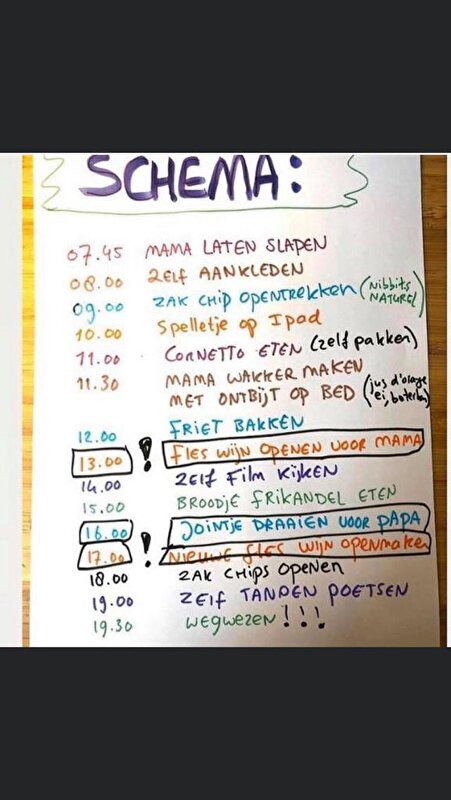 SCHEMA:
07.45 MAMA LATEN SLAPEN
08.00 ZELF AANKLEDEN
09.00 ZAK CHIP OPENTREKKEN (Nibbits NATUREL)
10.00 Spelletje op Ipad
11.00 CORNETTO ETEN (zelf pakken)
11.30 MAMA WAKKER MAKEN
MET ONTBIJT OP BED (jus d'orange, ei, boterham)
12.00 FRIET BAKKEN
13.00 ! FLES WIJN OPENEN VOOR MAMA
14.00 ZELF FILM KIJKEN
15.00 BROODJE FRIKANDEL ETEN
16.00 JOINTJE DRAAIEN VOOR PAPA
17.00 ! NIEUWE FLES WIJN OPENMAKEN
18.00 ZAK CHIPS OPENEN
19.00 ZELF TANDEN POETSEN
19.30 WEGWEZEN!!!